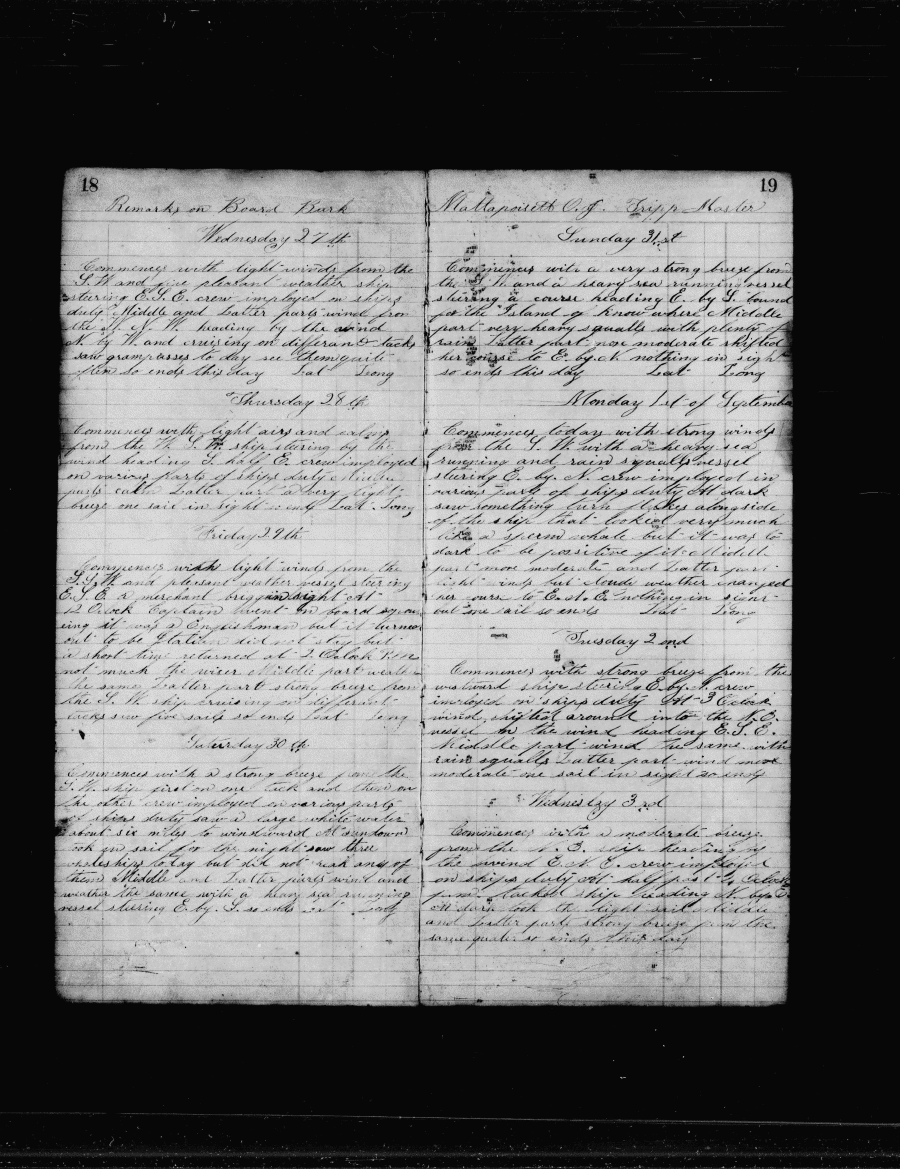 18
Remarks on Board Bark
Wednesday 27th
Commences with light winds from the
S.W. and fine pleasant weather ship
steering E.S.E. crew imployed on ships
duty Middle and Latter parts wind from
the N. W. heading by the wind
N. by W. and cruising on differant tacks
saw grampasses to day see them quite
often so ends this day Lat Long
Thursday 28th
Commences with light airs and calms
from the W. S. W. ship stering by the
wind heading S. half E. crew imployed
on various parts of ships duty Middle
parts calm Latter part a very light
breeze one sail in sight so ends Lat Long
Friday 29th
Commences with light winds from the
S.S.W. and plesent weather vessel stering
E.S.E. a merchant brigg in sight At
12 Oclock Captain went on board
ing it was a Englishman but it turned
out to be Italian did not stay but
a short time returned at 2 Oclock P.M.
not much the wiser Middle part weather
the same Latter part strong breeze from
the S. W. ship cruising on different
tacks saw five sails so ends Lat Long
Saturday 30th
Commences with a strong breeze from the
S.W. ship first on one tack and then on
the other crew imployed on various parts
of ships duty saw a large white water
about six miles to windward At sundown
took in sail for the night saw three
whaleships to day but did not speak any of
them Middle and Latter parts wind and
weather the same with a heavy sea running
vessel sterring E. by S. so ends Lat Long
19
Mattapoisett O.J. Tripp Master
Sunday 31st
Commences with a very strong breeze from
the S.W. and a heavy sea running vessel
steering a course heading E. by S. bound
for the Island of know where Middle
part very heavy squalls with plenty of
rain Latter part more moderate shifted
her course to E. by N. nothing in sight
so ends this day Lat Long
Monday 1st of September
Commences today with strong winds
from the S. W. with a heavy sea
running and rain squalls vessel
stering E. by. N. crew imployed in
various parts of ships duty At dark
saw something turn flukes alongside
of the ship that looked very much
like a sperm whale but it was to
dark to be possitive of it Midell
part more moderate and Latter part
light winds but cloude weather changed
her course to E.N.E. nothing in sight
but one sail so ends Lat Long
Tuesday 2nd
Commences with strong breeze from the
westward ship stering E. by N. crew
imployed on ships duty At 3 Oclock
wind shifted around into the N.E.
vessel on the wind heading E.S.E.
Middle part wind the same with
rain squalls Latter part wind more
moderate one sail in sight so ends
Wednesday 3rd
Commences with a moderate breeze
from the N. E. ship heading by
the wind E. N. E. crew imployed
on ships duty At half past Oclock
tacked ship heading N. by E.
At dark took the light sail Middle
and Latter parts strong breeze from the
same quarter so ends this day